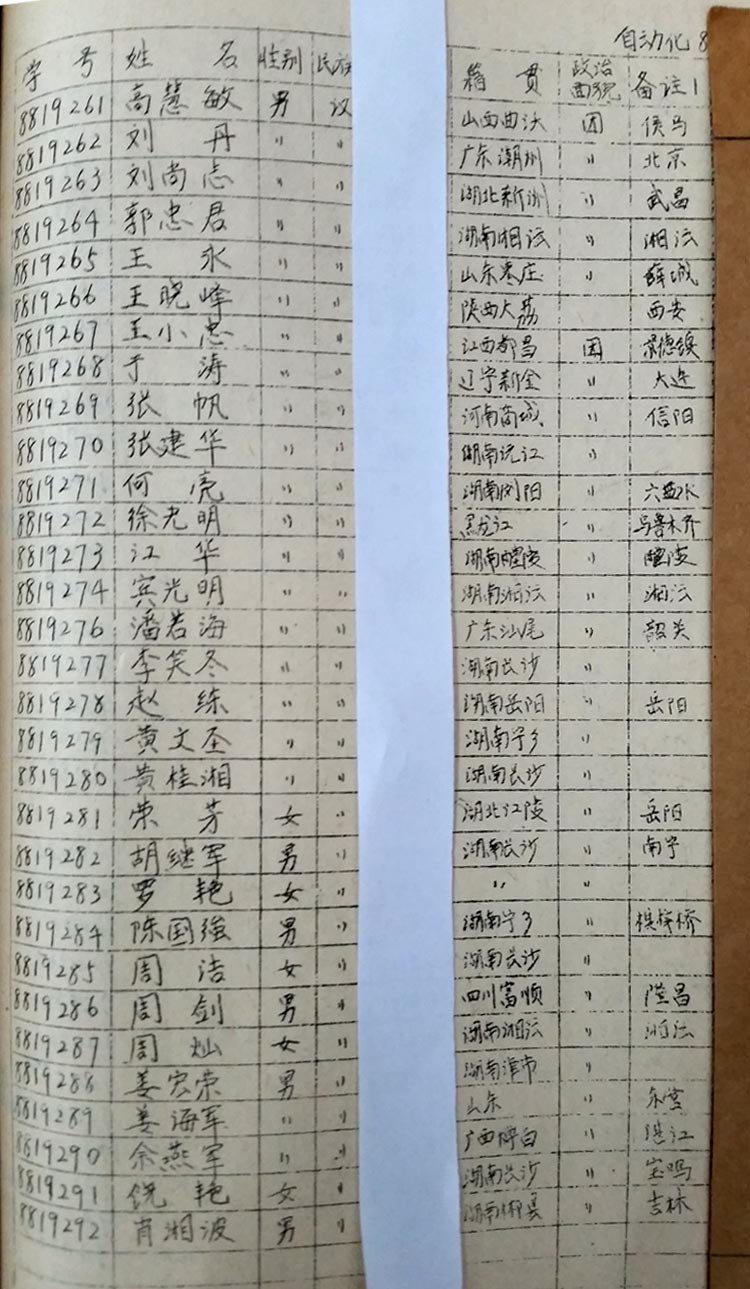 自动化8
学号 姓名 性别 民族 籍贯 政治面貌 备注1
8819261 高慧敏 男 汉 山西曲沃 团 侯马
8819262 刘丹 〃 〃 广东潮州 〃 北京
8819263 刘尚志 〃 〃 湖北新洲 〃 武昌
8819264 郭忠君 〃 〃 湖南湘沄 〃 湘沄
8819265 王永 〃 〃 山东枣庄 〃 薛城
8819266 王晓峰 〃 〃 陕西大荔 西安
8819267 王小忠 〃 〃 江西都昌 团 景德镇
8819268 于涛 〃 〃 辽宁新金 〃 大连
8819269 张帆 〃 〃 河南商城 〃 信阳
8819270 张建华 〃 〃 湖南沅江 〃
8819271 何亮 〃 〃 湖南浏阳 〃 六盘水
8819272 徐光明 〃 〃 黑龙江 〃 乌鲁木齐
8819273 江华 〃 〃 湖南醴陵 〃 醴陵
8819274 宾光明 〃 〃 湖南湘沄 〃 湘沄
8819276 潘若海 〃 〃 广东汕尾 〃 韶关
8819277 李笑冬 〃 〃 湖南长沙 〃
8819278 赵练 〃 〃 湖南岳阳 〃 岳阳
8819279 黄文圣 〃 〃 湖南宁乡 〃
8819280 黄桂湘 〃 〃 湖南长沙 〃
8819281 荣芳 女 〃 湖北江陵 〃 岳阳
8819282 胡继军 男 〃 湖南长沙 〃 南宁
8819283 罗艳 女 〃 〃 〃
8819284 陈国强 男 〃 湖南宁乡 〃 棋梓桥
8819285 周洁 女 〃 湖南长沙 〃
8819286 周剑 男 〃 四川富顺 〃 隆昌
8819287 周灿 女 〃 湖南湘沄 〃 湘沄
8819288 姜宏荣 男 〃 湖南津市 〃
8819289 姜海军 〃 〃 山东 〃 东营
8819290 余燕军 〃 〃 广西博白 〃 湛江
8819291 饶艳 女 〃 湖南长沙 〃 宝鸡
8819292 肖湘波 男 〃 湖南 〃 吉林